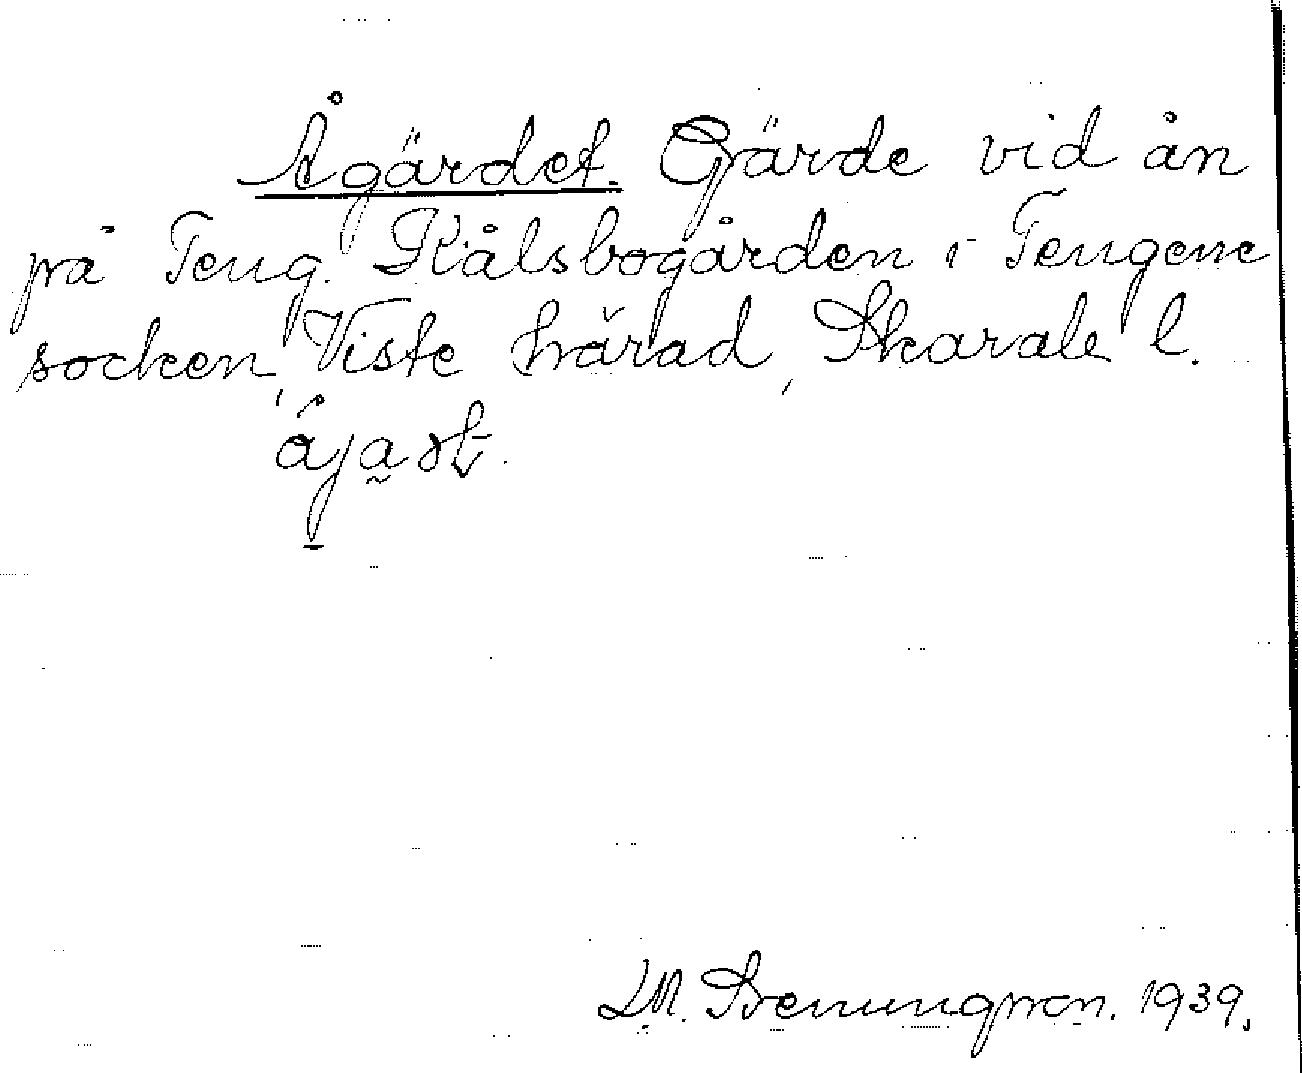 Ågärdet. Gärde vid ån
på Teng. Kålsbogården i Tengene
socken, Viste härad, Skarab. l.
1939.